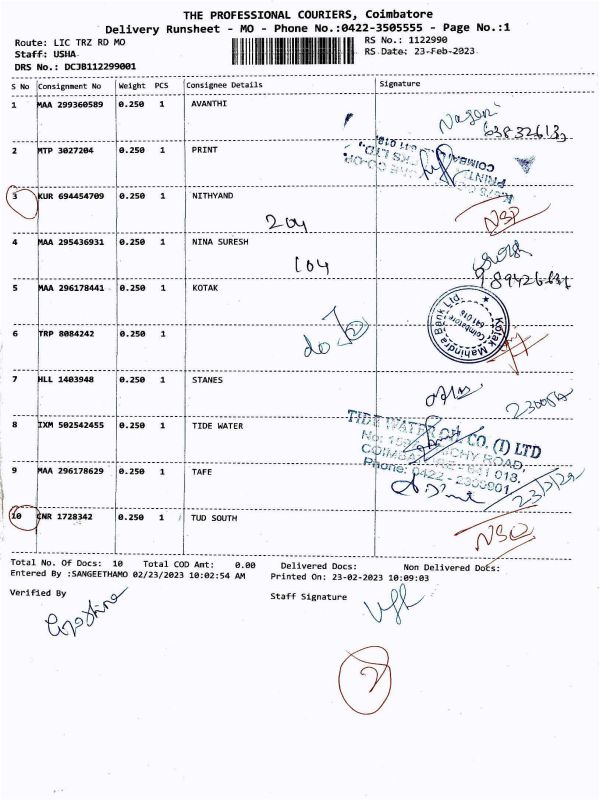 THE PROFESSIONAL COURIERS, Coimbatore
Delivery Runsheet - MO - Phone No.:0422-3505555 - Page No.:1
Route: LIC TRZ RD MO
RS No.: 1122990
Staff: USHA
RS Date: 23-Feb-2023
DRS No.: DCJB112299001
S No Consignment No Weight PCS Consignee Details Signature
1 MAA 299360589 0.250 1 AVANTHI
2 MTP 3027204 0.250 1 PRINT
COIMBA 641 018.
3 KUR 694454709 0.250 1 NITHYAND
204
4 MAA 295436931 0.250 1 NINA SURESH
104
5 MAA 296178441 0.250 1 KOTAK
Kotak Mahindra Bank Ltd.
Coimbatore 641 018
6 TRP 8084242 0.250 1
do
7 HLL 1403948 0.250 1 STANES
8 IXM 502542455 0.250 1 TIDE WATER
TIDE WATER OIL CO. (I) LTD
ROAD,
641 018.
Phone: 0422 -
9 MAA 296178629 0.250 1 TAFE
10 CNR 1728342 0.250 1 TUD SOUTH
Total No. Of Docs: 10 Total COD Amt: 0.00 Delivered Docs: Non Delivered Docs:
Entered By :SANGEETHAMO 02/23/2023 10:02:54 AM Printed On: 23-02-2023 10:09:03
Verified By Staff Signature
2